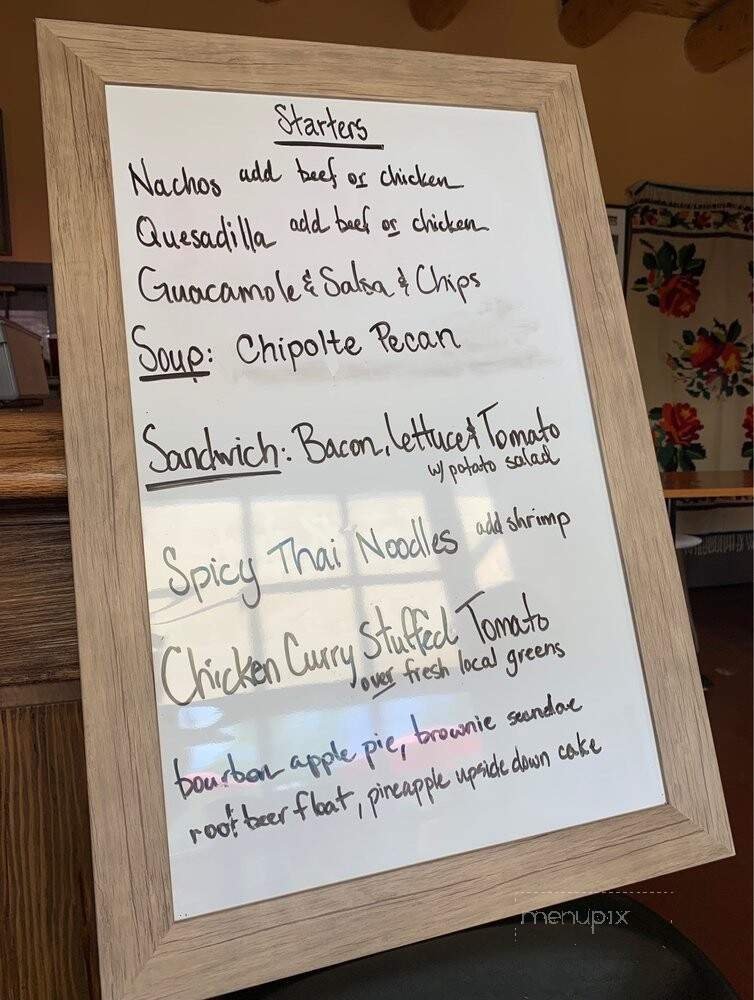 Starters
Nachos add beef or chicken
Quesadilla add beef or chicken
Guacamole & Salsa & Chips
Soup: Chipolte Pecan
Sandwich: Bacon, lettuce & Tomato
w/ potato salad
Spicy Thai Noodles add shrimp
Chicken Curry Stuffed Tomato
over fresh local greens
bourbon apple pie, brownie seundae
root beer float, pineapple upside down cake
menupix